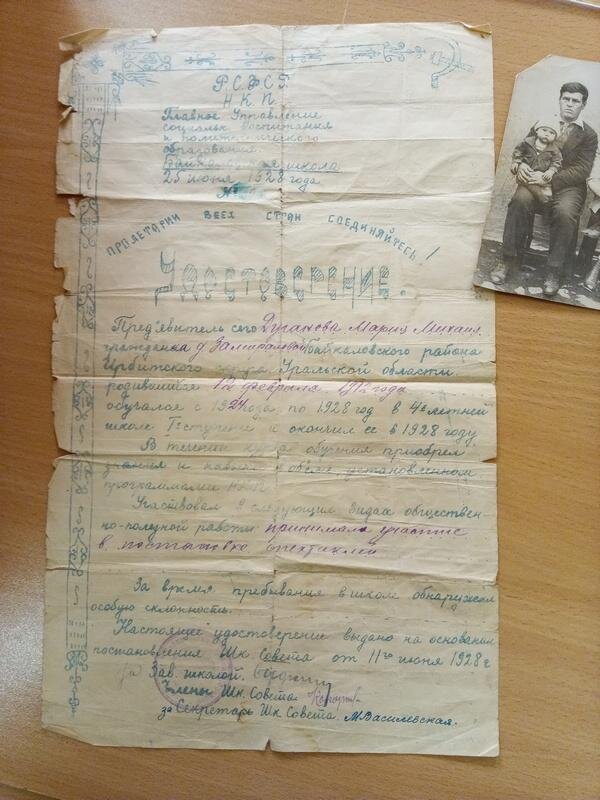 Р.С.Ф.С.Р.
Н.К.П.
Главное Управление
социальн. воспитания
и политехнического
образования.
Байкаловская школа
25 июня 1928 года
№
ПРОЛЕТАРИИ ВСЕХ СТРАН СОЕДИНЯЙТЕСЬ!
УДОСТОВЕРЕНИЕ.
Пред'явитель сего Дуганова Мария Михаил.
гражданка д. Байкаловского района
Ирбитского округа Уральской области.
родившийся 12 февраля 1912 года
обучался с 1924 года, по 1928 год в 4х летней
школе I ступени и окончил ее в 1928 году
В течении курса обучения приобрел
знания и навыки в объеме установленном
программами Н.К.П.
Участвовал в следующих видах обществен-
но-полезной работы принимала участие
в постановке спектаклей
За время пребывания в школе обнаружил
особую склонность.
Настоящее удостоверение выдано на основании
постановления Шк. Совета от 11го июня 1928 г.
Зав. школой.
Члены Шк. Совета.
за Секретарь Шк. Совета. М.Василевская.